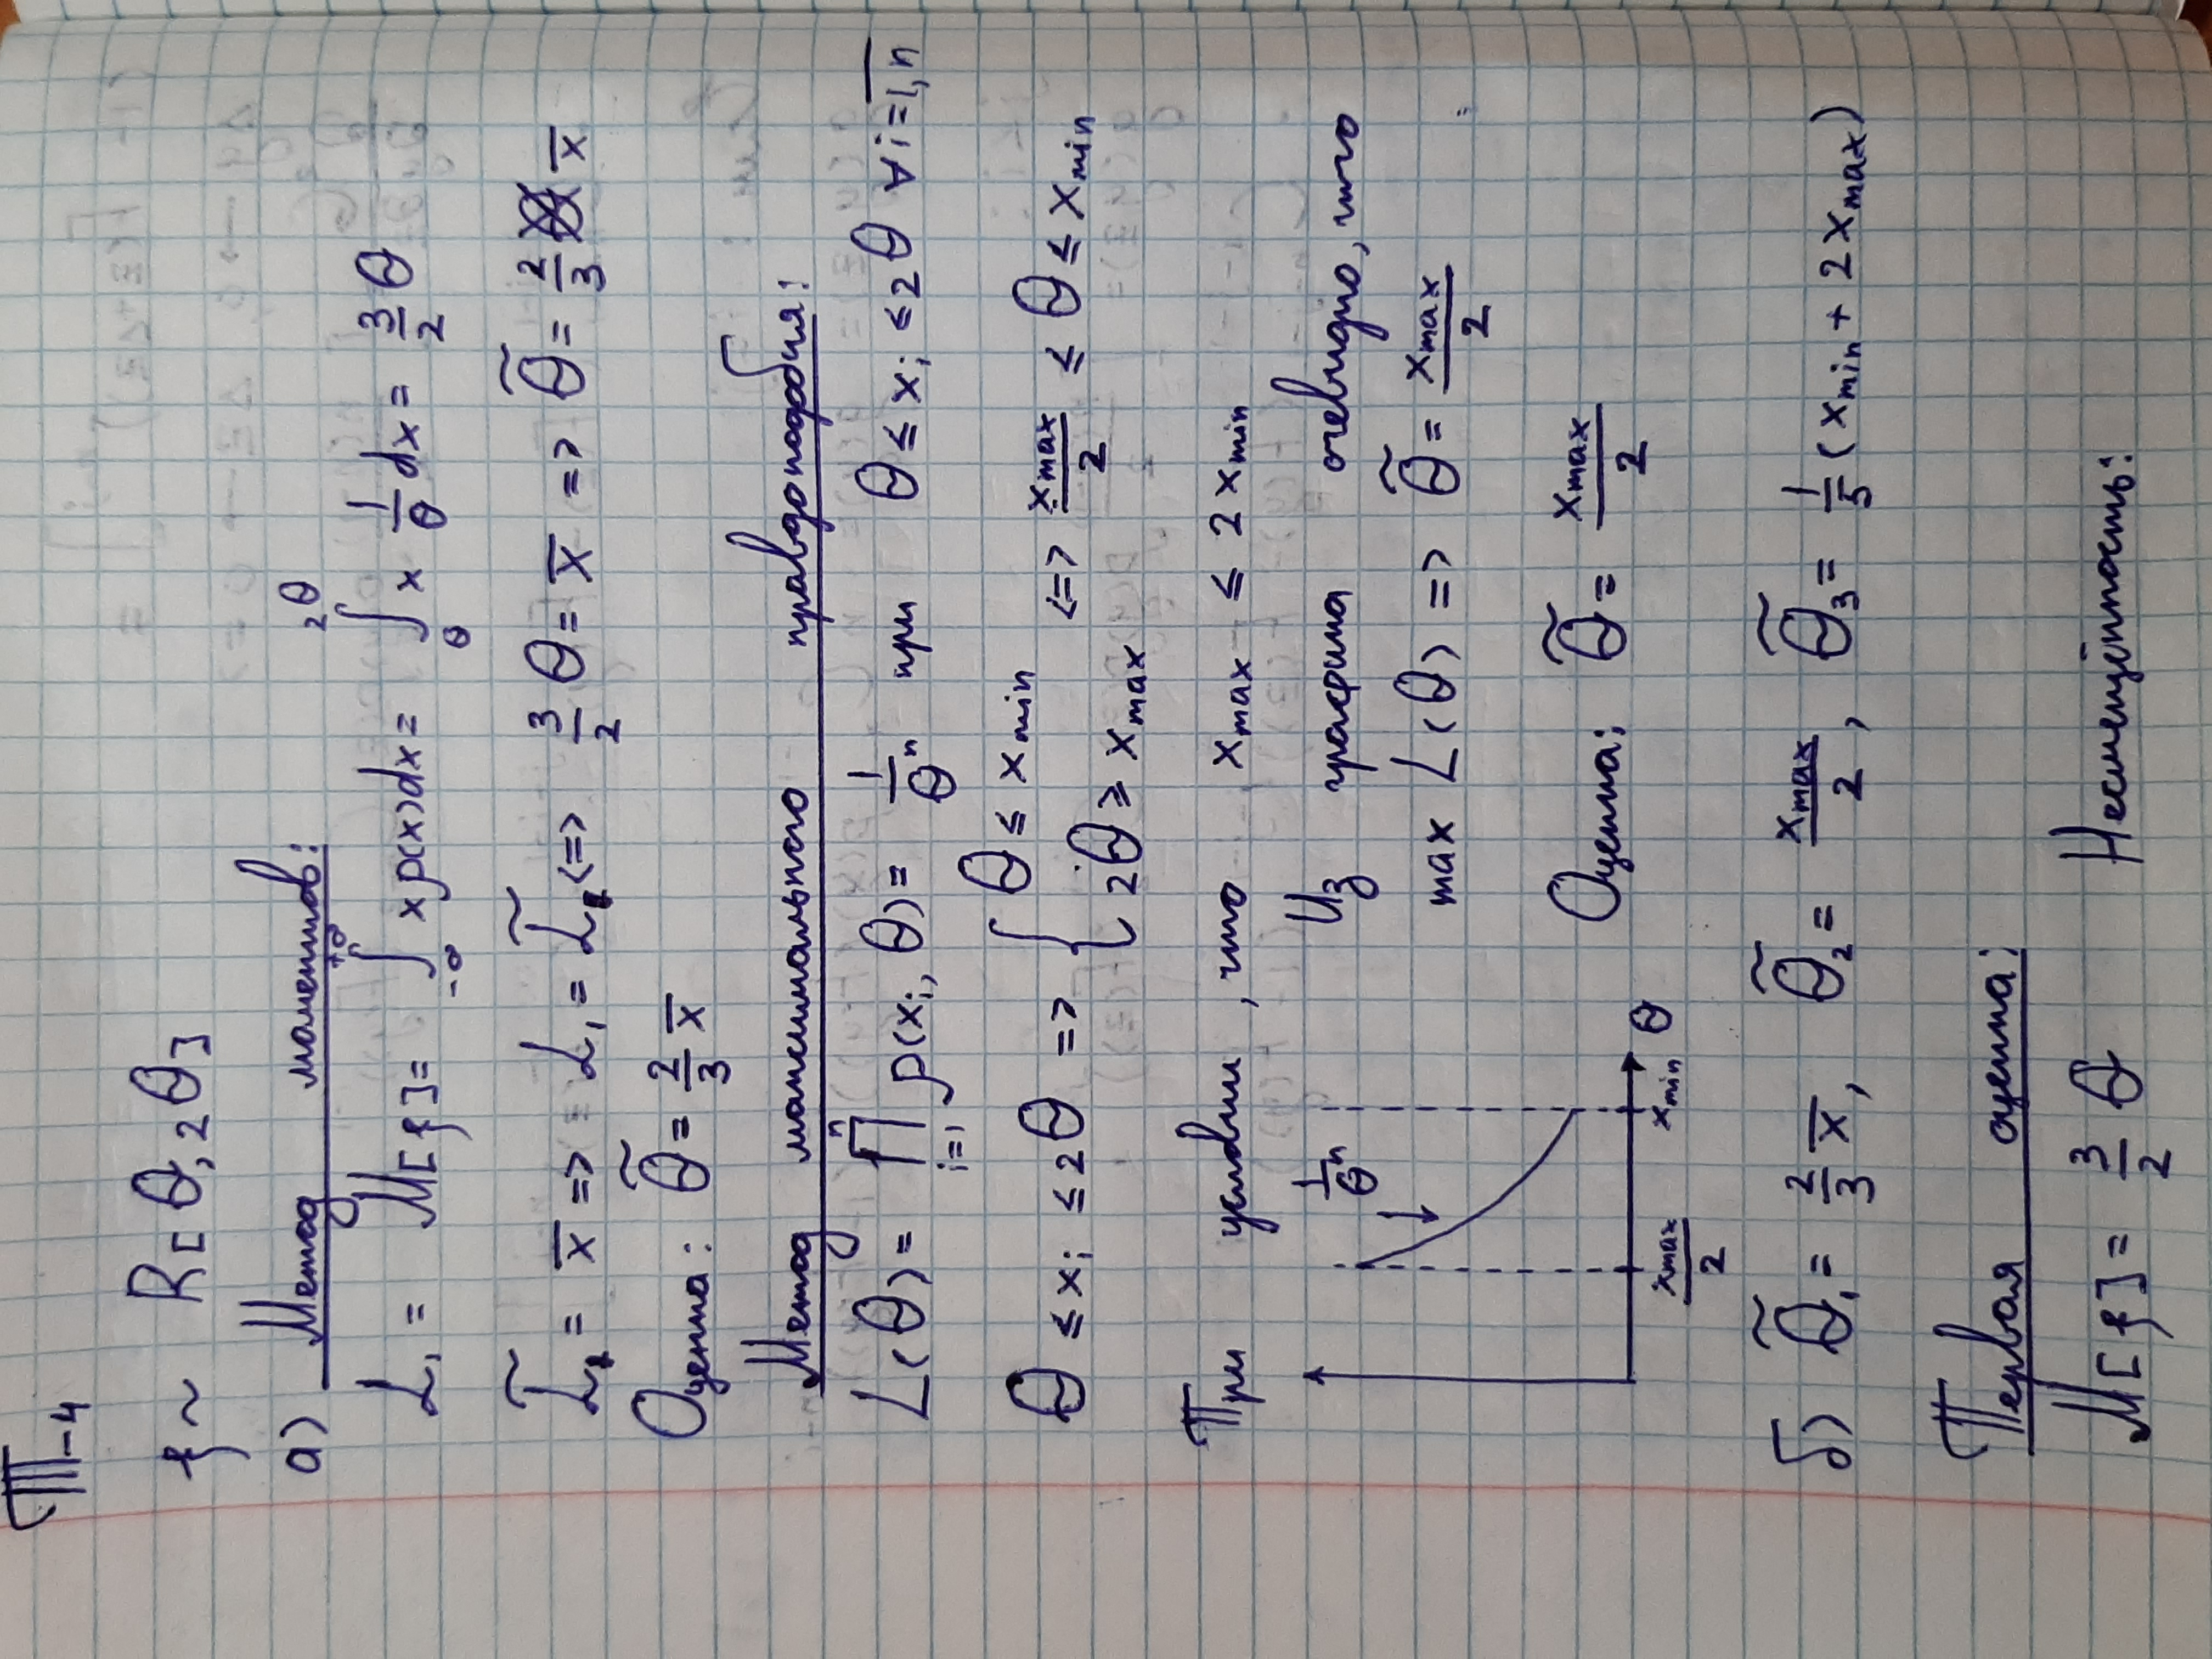 Т-4
ξ ~ R[θ, 2θ]
а) Метод моментов:
α₁ = M[ξ] = ∫_{-∞}^{+∞} x p(x) dx = ∫_{θ}^{2θ} x 1/θ dx = 3/2 θ
α̃₁ = x̄ => α₁ = α̃₁ <=> 3/2 θ = x̄ => θ̃ = 2/3 x̄
Оценка: θ̃ = 2/3 x̄
Метод максимального правдоподобия:
L(θ) = ∏_{i=1}^{n} p(xᵢ, θ) = 1/θⁿ при θ ≤ xᵢ ≤ 2θ ∀i = 1,n
θ ≤ xᵢ ≤ 2θ => { θ ≤ x_min ; 2θ ≥ x_max <=> x_max/2 ≤ θ ≤ x_min
При условии, что x_max ≤ 2x_min
1/θⁿ
Из графика очевидно, что
max L(θ) => θ̃ = x_max/2
Оценка: θ̃ = x_max/2
x_max/2 x_min θ
б) θ̃₁ = 2/3 x̄, θ̃₂ = x_max/2, θ̃₃ = 1/5 (x_min + 2x_max)
Первая оценка:
M[ξ] = 3/2 θ Несмещённость: